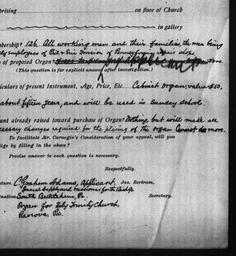 prising on floor of Church
in gallery
mbership? 126. All working men and their families, the men being
employees of Division of Pennsylvania
of proposed Organ?
(This question is for explicit answer after investigation.)
iculars of present Instrument, Age, Price, Etc. Cabinet organ value $50.
about fifteen years, and will be used in Sunday school.
unt already raised toward purchase of Organ? Nothing, but will make all
necessary changes required for the placing of the organ. Cannot do more.
To facilitate Mr. Carnegie's Consideration of your appeal, will you
ge by filling in the above?
Precise answer to each question is necessary.
Respectfully,
ature Graham Adams, Applicant, Jas. Bertram,
South Bethlehem, Pa. Secretary.
Organ for Holy Trinity Church
Renovo, Pa.